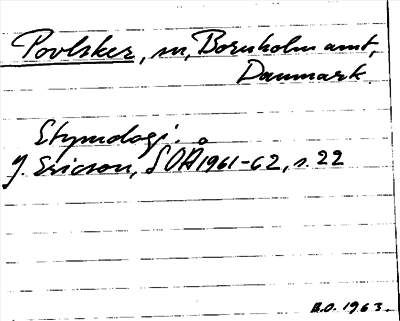 Povlsker, sn, Bornholm amt,
Danmark.
Etymologi.
G. Ericson, SOÅ 1961-62, s. 22
B.O. 1963.